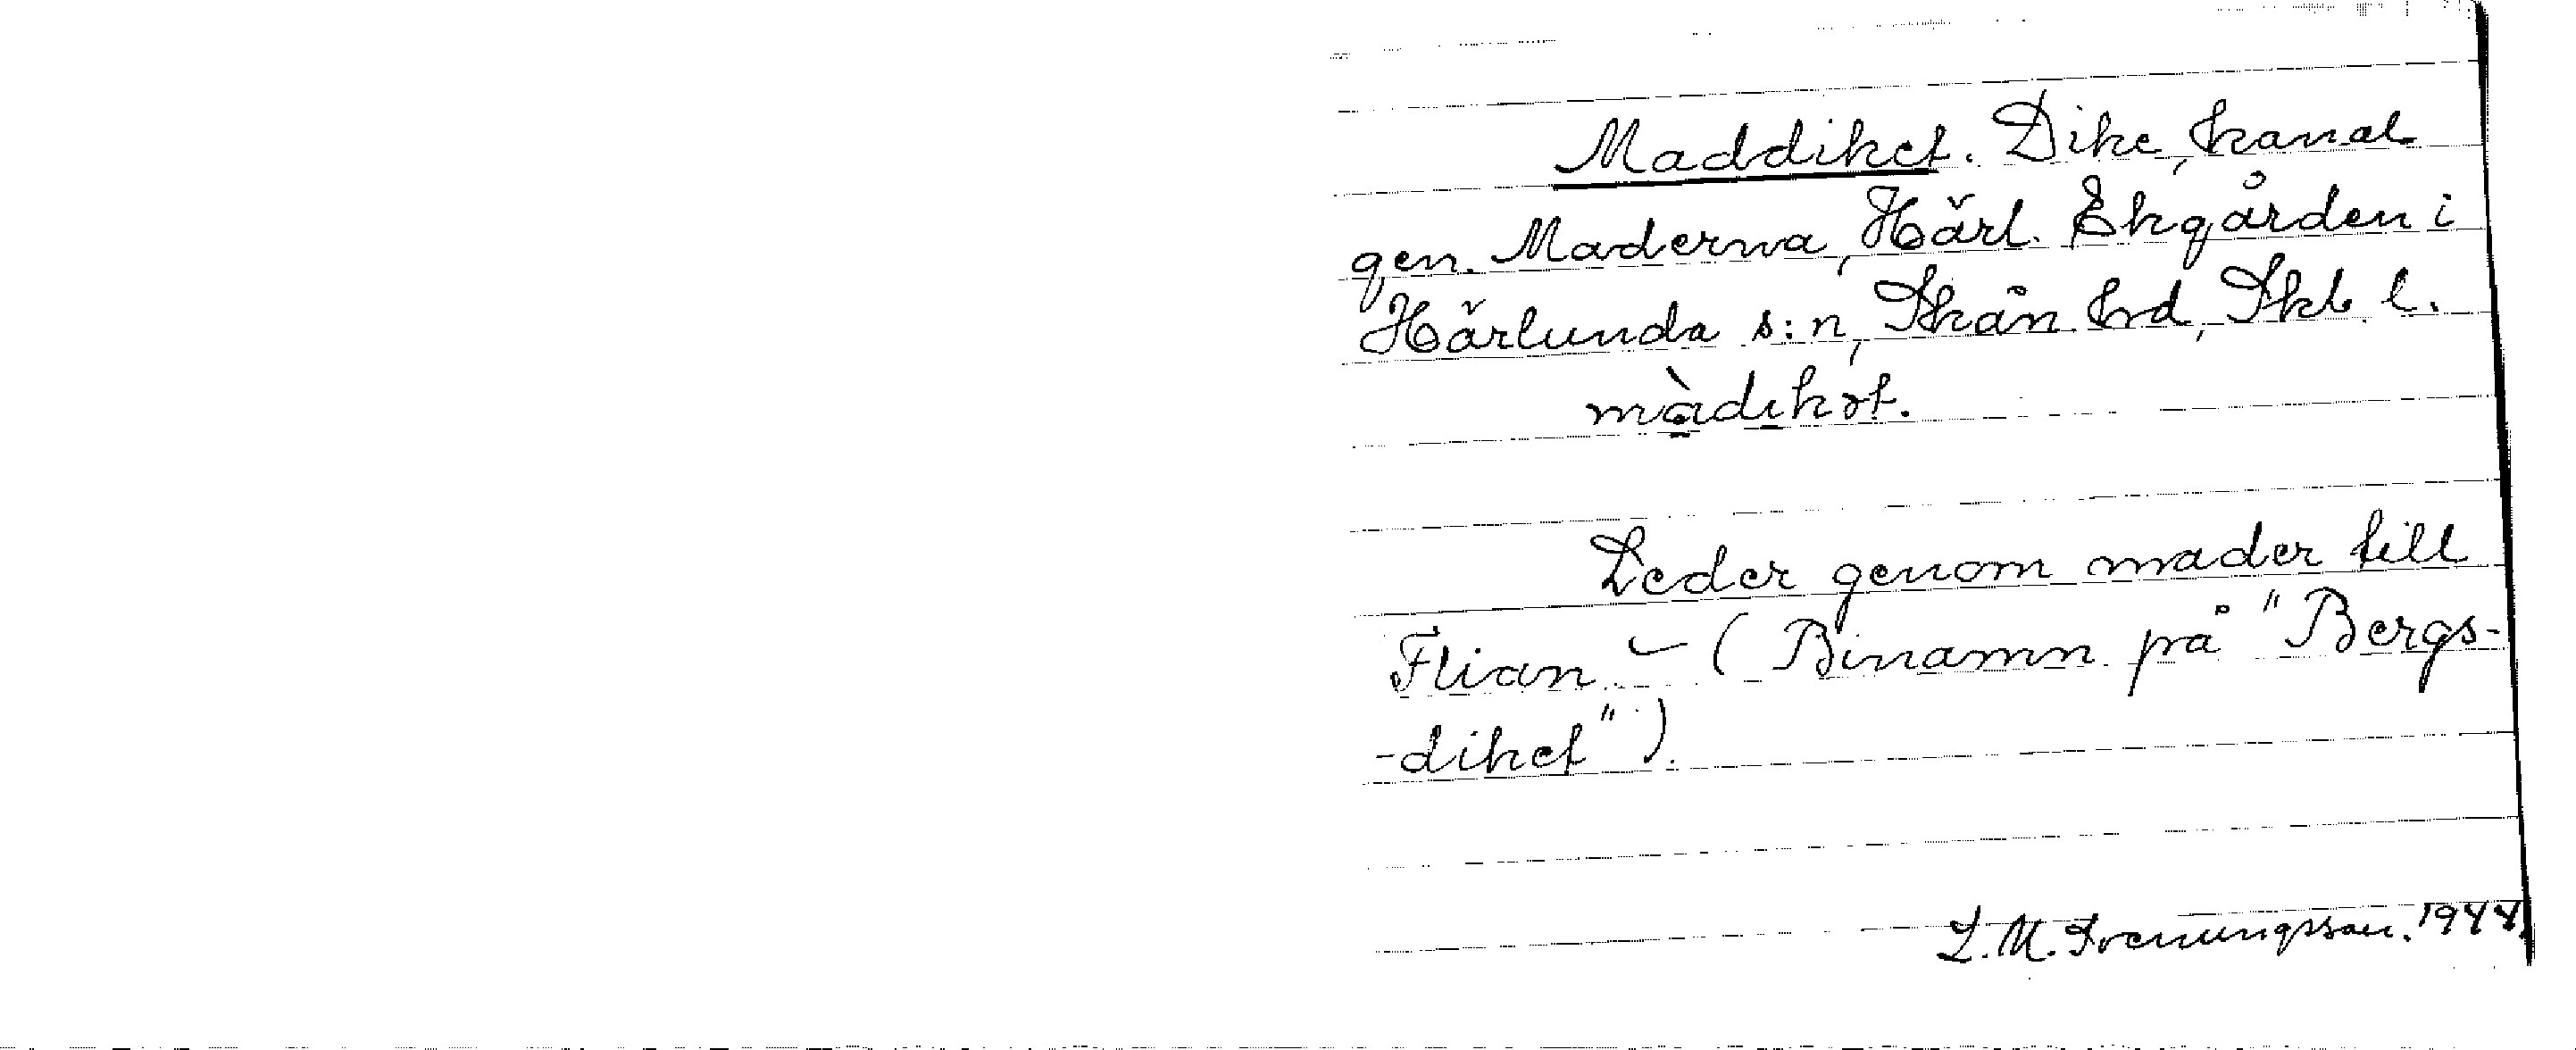 Maddiket. Dike, kanal
gen. Maderna, Härl. Ekgården i
Härlunda s:n, Skån. hd, Skb. l.
màdikət.
Leder genom mader till
Flian – (Binamn på "Bergs-
-diket").
L. M. Svenungsson. 1944.